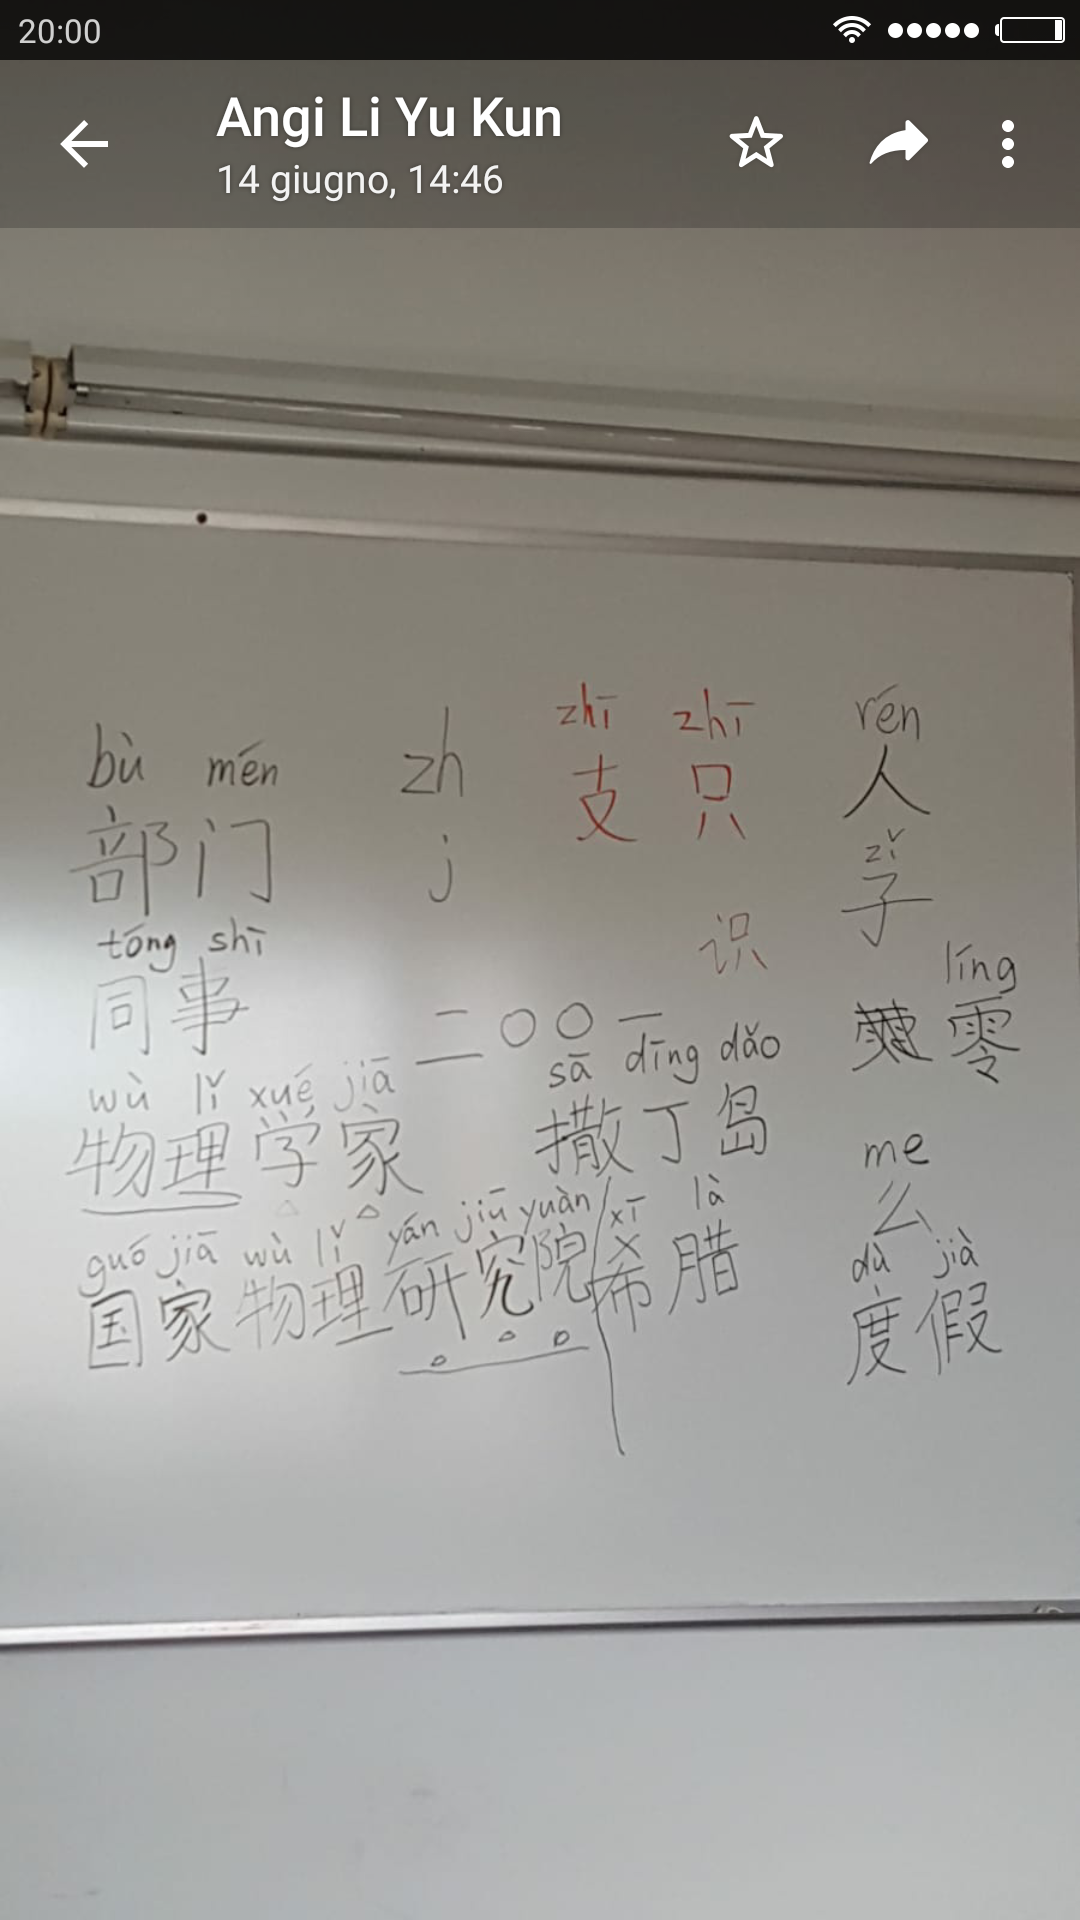 20:00
Angi Li Yu Kun
14 giugno, 14:46
bù mén zh zhī zhī rén
部门 支 只 人
j zǐ
子
tóng shī 识 líng
同事 二〇〇一 零
wù lǐ xué jiā sā dīng dǎo
物理学家 撒丁岛 me
么
guó jiā wù lǐ yán jiū yuàn xī là dù jià
国家物理研究院 希腊 度假